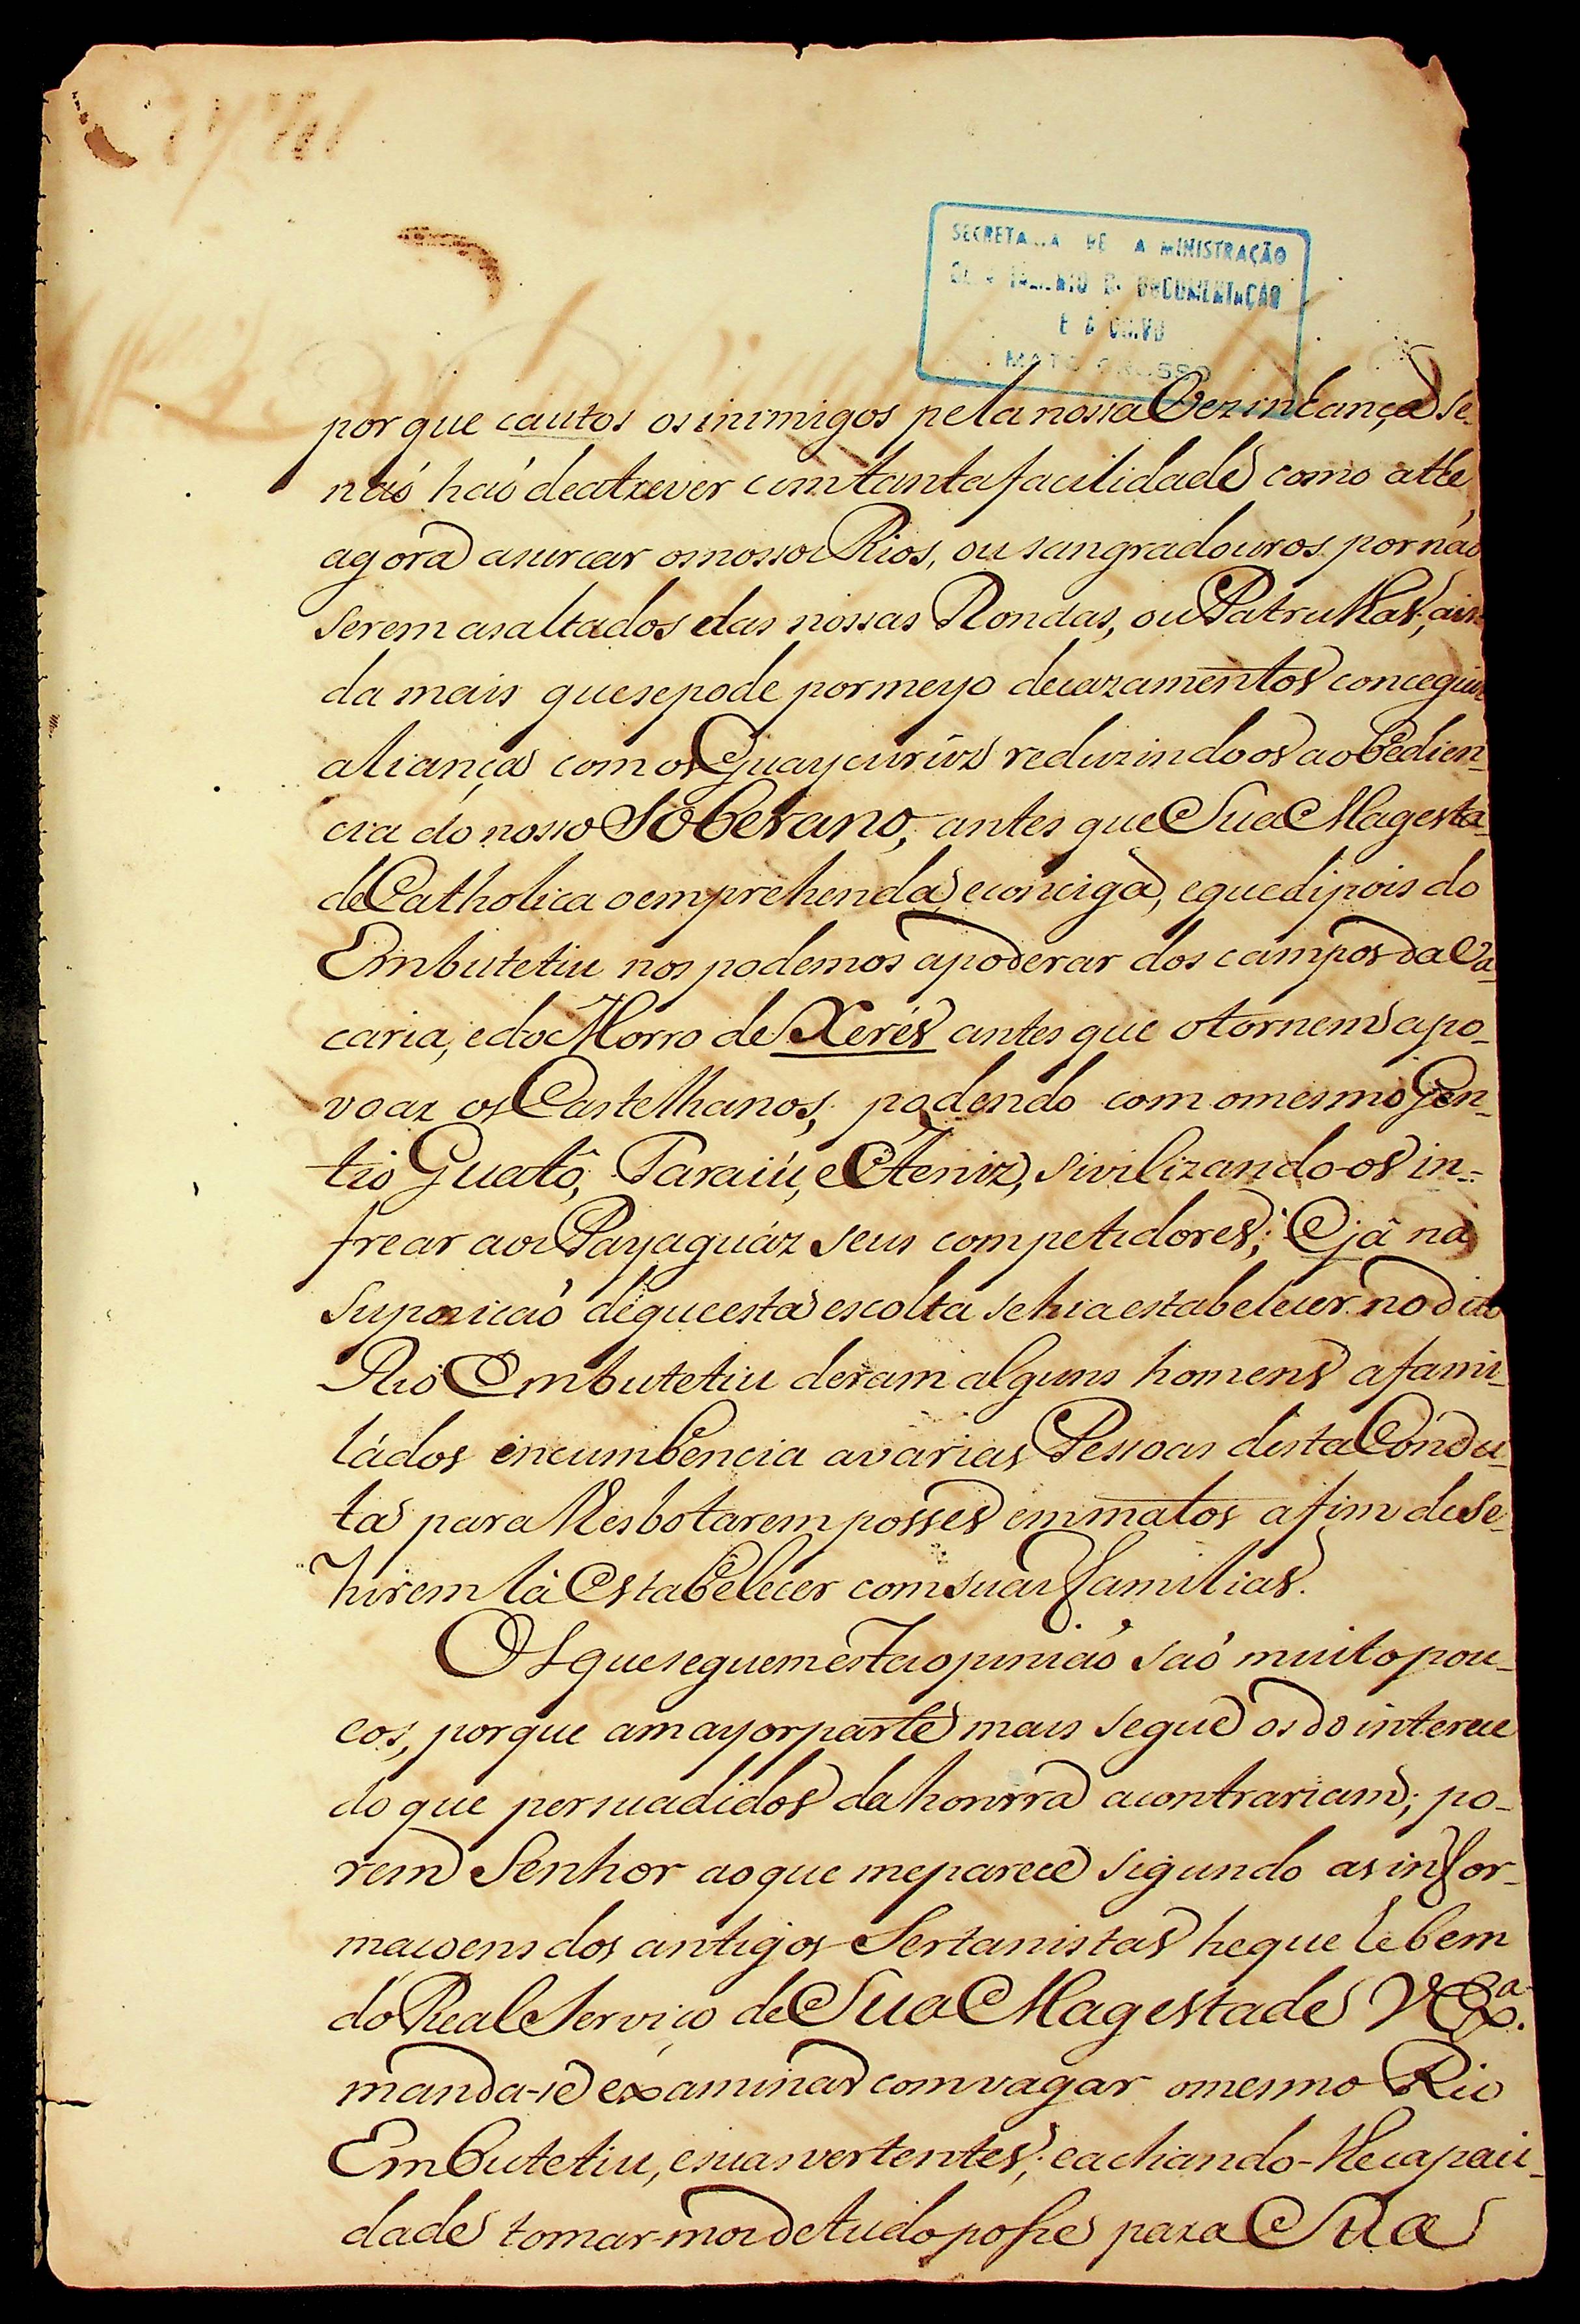 SECRETA A DE A MINISTRAÇÃO
DOCUMENTAÇÃO
E
MATO GROSSO
por que cautos os inimigos pela nossa Vezinhança se
naó haó de atrever com tanta facilidade como athe
agora asurcar os nossos Rios, ou sangradouros por naó
serem asaltados das nossas Rondas, ou Patrulhas; ain
da mais que se pode por meyo de cazamentos conceguir
aliança com os Guaycurûz reduzindo os ao bedien_
cia do nosso Soberano, antes que Sua Magesta_
de Catholica o emprehenda, e conciga, e que dipois do
Embutetiu nos podemos apoderar dos campos da Va_
caria, e do Morro de Xerés antes que o tornem apo_
voar os Castelhanos, podendo com o mesmo Gen_
tio Guatô, Paraiú, e Oteniz, sivilizando-os in_
frear aos Payaguáz seus competidores; E já na
Suposicaó de que esta escolta se hia estabelecer no dito
Rio Embutetiu deram alguns homens afami_
ládos incumbencia a varias Pessoas desta Condu_
ta para lhes botarem posses em matos a fim de se
hirem lá Estabelecer com suas familias.
Os que seguem esta opiniaó saó muito pou_
cos, porque a mayor parte mais segue os do interece
do que persuadidos da honrra a contrariam; po_
rem Senhor ao que me parece sigundo as infor_
macoens dos antigos Sertanistas he que he bem
do Real Servico de Sua Magestade V Ex.ª
manda-se examinar com vagar o mesmo Rio
Embutetiu, e suas vertentes; e achando-lhe capaci_
dade tomar-mos de tudo posse para Sua